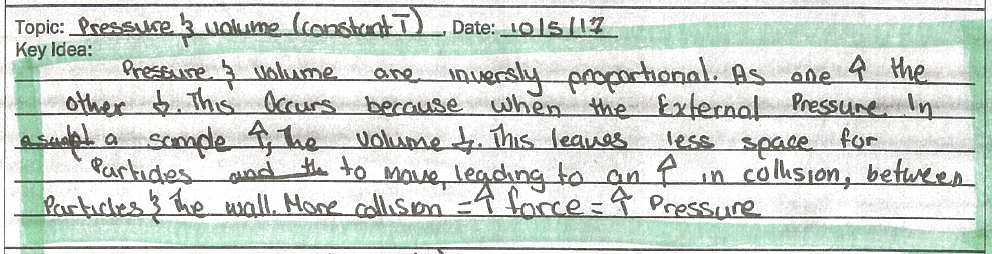 Topic: Pressure & volume (constant T), Date: 10/5/17
Key Idea:
Pressure & volume are inversly proportional. As one ↑ the
other ↓. This Occurs because when the External Pressure In
a sample ↑, the volume ↓. This leaves less space for
Particles to move, leading to an ↑ in collision, between
Particles & The wall. More collision = ↑ force = ↑ Pressure